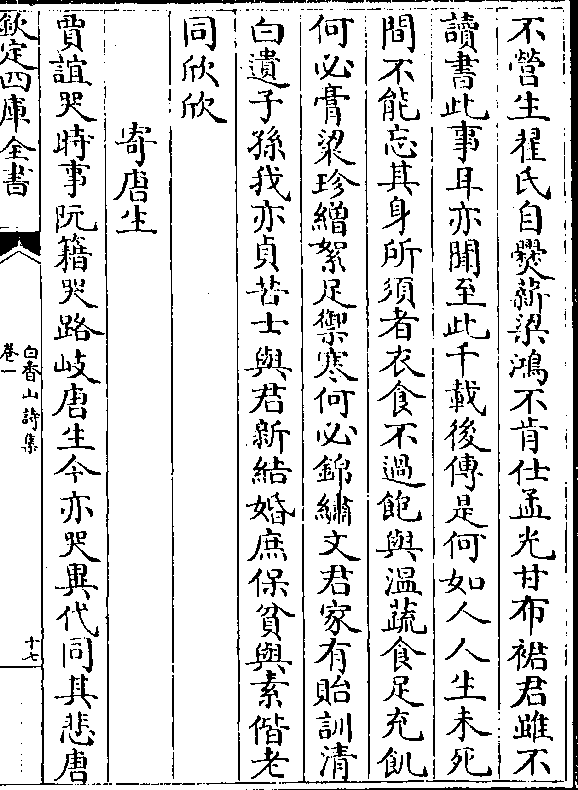 不營生翟氏自爨薪梁鴻不肯仕孟光甘布裙君雖不
讀書此事耳亦聞至此千載後傳是何如人人生未死
間不能忘其身所須者衣食不過飽與溫蔬食足充飢
何必膏粱珍繒絮足禦寒何必錦繡文君家有貽訓清
白遺子孫我亦貞苦士與君新結婚庶保貧與素偕老
同欣欣
寄唐生
賈誼哭時事阮籍哭路岐唐生今亦哭異代同其悲唐
欽定四庫全書
白香山詩集
卷一
十七